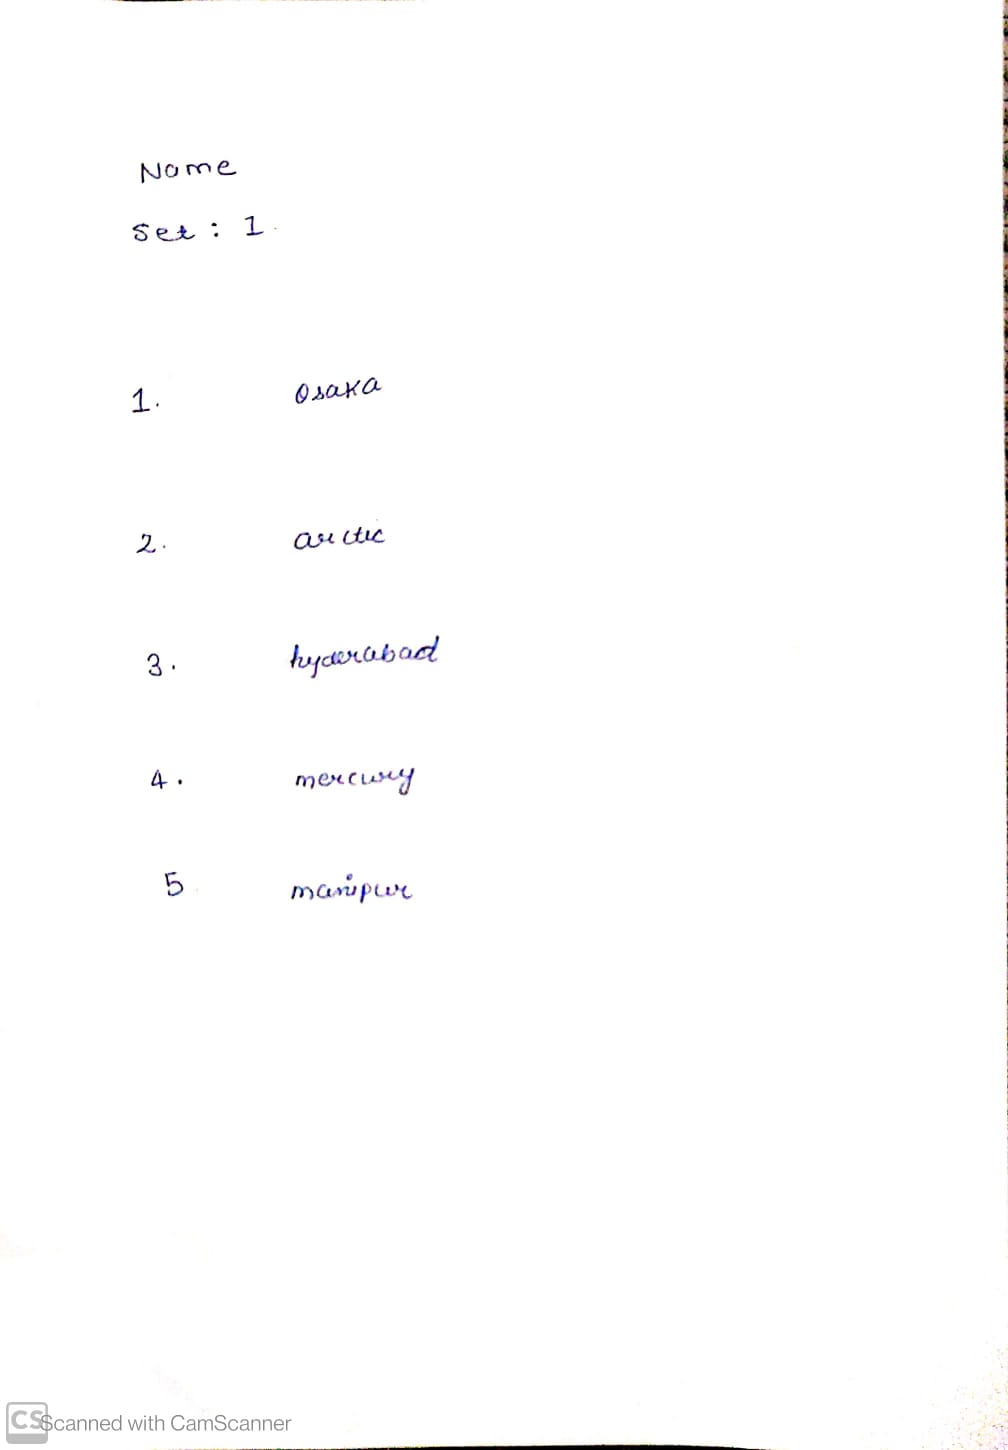 Name
Set : 1.
1. Osaka
2. arctic
3. hyderabad
4. mercury
5 manipur
CS Scanned with CamScanner